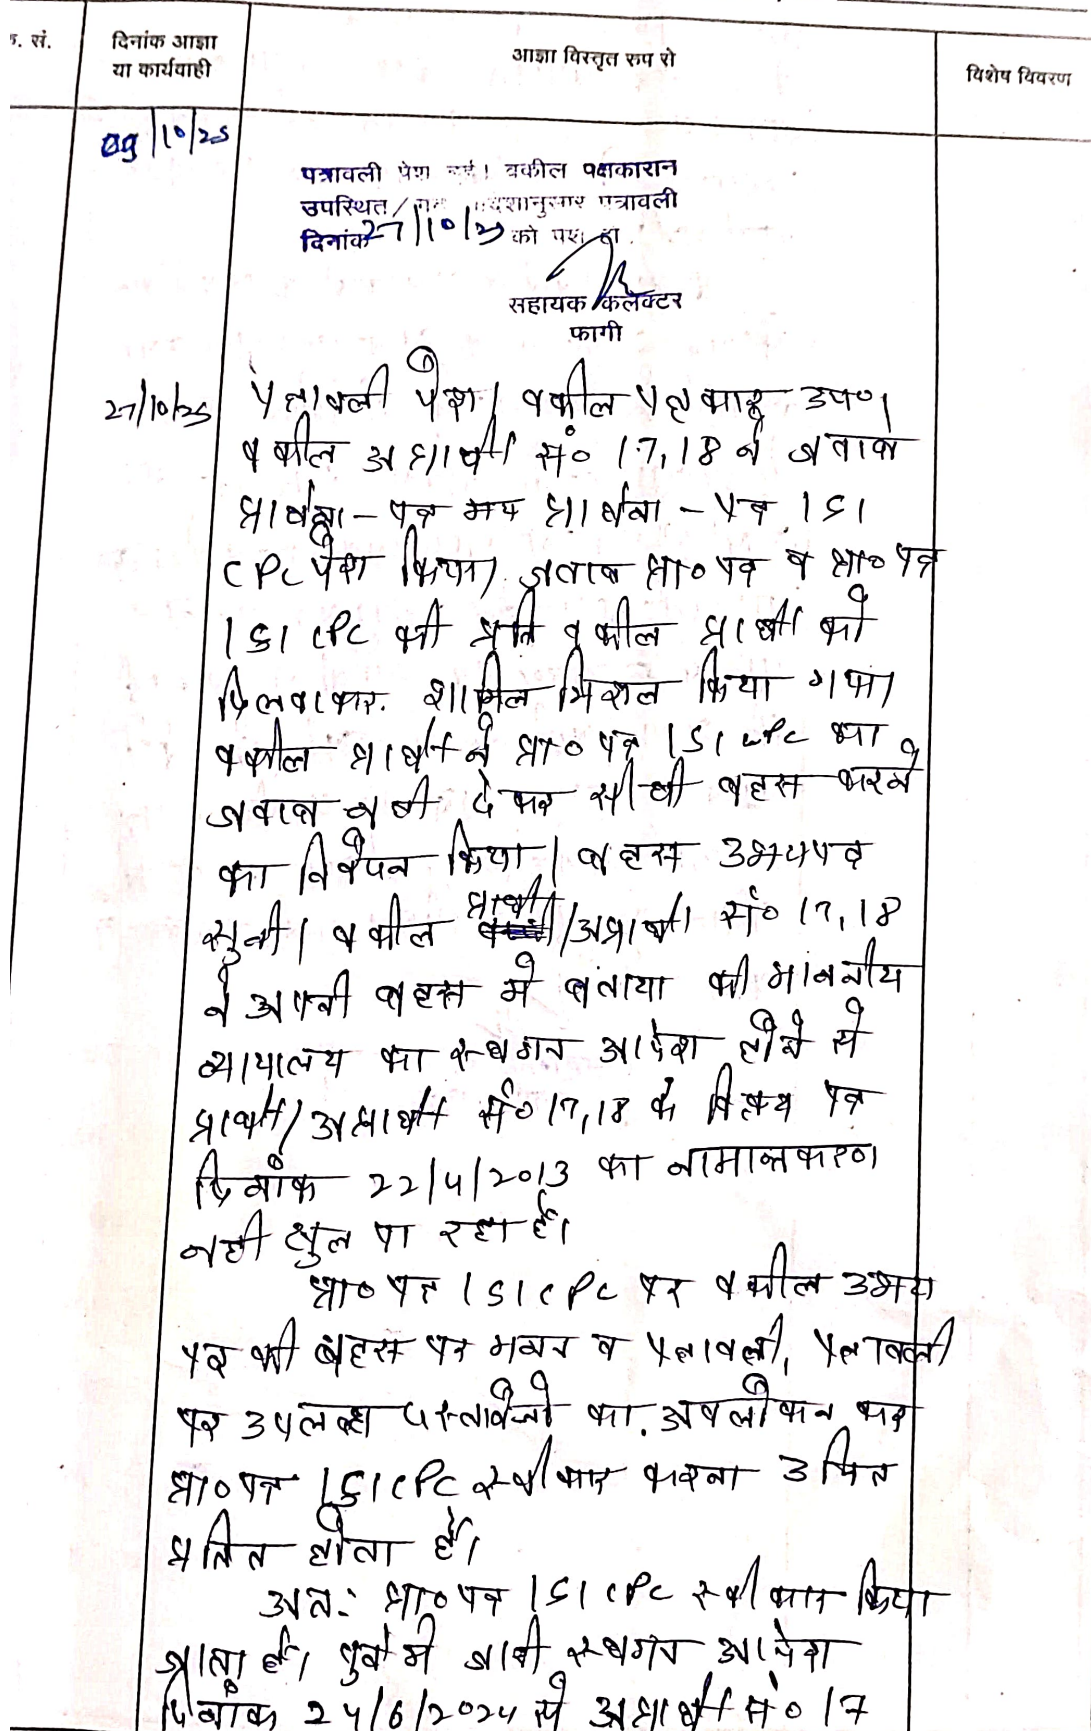 क. सं.
दिनांक आज्ञा
या कार्यवाही
आज्ञा विस्तृत रुप रो
विशेष विवरण
09/10/25
पत्रावली पेश हुई। वकील पक्षकारान
उपस्थित/ पत्रावली
दिनांक 27/10/25 को पेश हो.
सहायक कलेक्टर
फागी
27/10/25
पत्रावली पेश। वकील पक्षकार उप०।
वकील अप्रार्थी सं० 17,18 ने जवाब
प्रार्थना-पत्र मय प्रार्थना-पत्र 151
CPC पेश किया। जवाब प्रा० पत्र व प्रा० पत्र
151 CPC की प्रति वकील प्रार्थी को
दिलवाकर. शामिल मिसल किया गया।
वकील प्रार्थी ने प्रा० पत्र 151 CPC का
जवाब नही देकर सीधी बहस करने
का निवेदन किया। बहस उभयपक्ष
सुनी। वकील प्रार्थी/अप्रार्थी सं० 17,18
ने अपनी बहस मे बताया की माननीय
न्यायालय का स्थगन आदेश होने से
प्रार्थी/अप्रार्थी सं० 17,18 के विक्रय पत्र
दिनांक 22/4/2013 का नामान्तकरण
नही खुल पा रहा है।
प्रा० पत्र 151 CPC पर वकील उभय
पक्ष की बहस पर मनन व पत्रावली, पत्रावली
पर उपलब्ध दस्तावेजो का. अवलोकन कर
प्रा० पत्र 151 CPC स्वीकार करना उचित
प्रतित होता है।
अत: प्रा० पत्र 151 CPC स्वीकार किया
जाता है। पुर्व मे जारी स्थगन आदेश
दिनांक 24/6/2024 से अप्रार्थी सं० 17